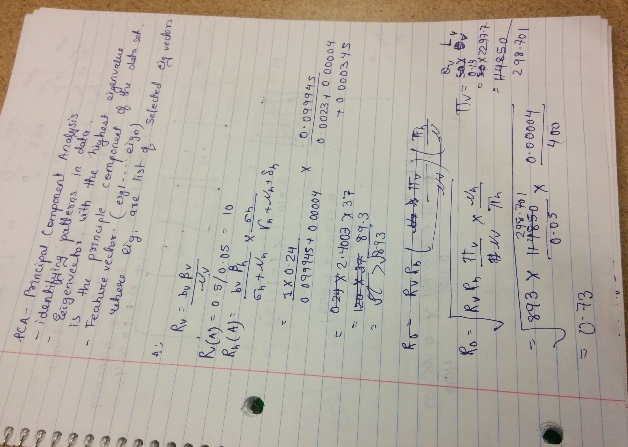 PCA - Principal Component Analysis
- identifying patterns in data.
Eeigenvector with the highest eigenvalue
is the principle component of the data set.
- Feature vector. (eig1 .... eign)
where eigi are list of selected eig vectors
A:
Rv = bv βv / μv
Rv(A) = 0.5/0.05 = 10
Rh(A) = bv βh / σh + μh × σh / rh + μh + δh
= 1 × 0.24 / 0.099945 + 0.00004 × 0.099945 / 0.0023 + 0.00004 + 0.000345
= 0.24 × 2.4003 × 37
= 120 × 37 89.3
= 893
R0 = Rv Rh
R0 = √ Rv Rh πv / μv × μh / πh
πv = av Lv
= 50 × 2297.7
0.13
= 114850
298.701
= √ 893 × 114850 / 0.05 × 0.00004 / 400
298.701
= 0.73